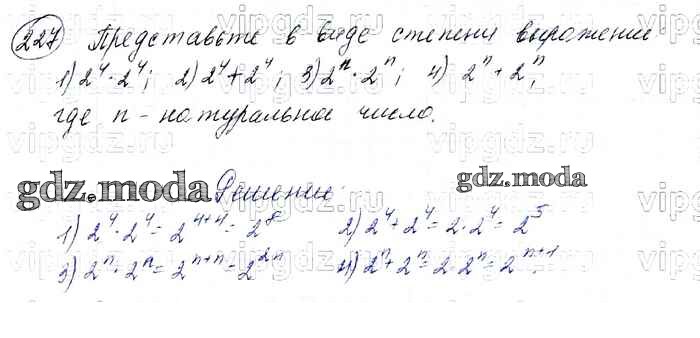 227 Представьте в виде степени выражение
1) 2⁴·2⁴; 2) 2⁴+2⁴; 3) 2ⁿ·2ⁿ; 4) 2ⁿ+2ⁿ,
где n - натуральное число.
gdz.moda Решение: gdz.moda
1) 2⁴·2⁴=2⁴⁺⁴=2⁸ 2) 2⁴+2⁴=2·2⁴=2⁵
3) 2ⁿ·2ⁿ=2ⁿ⁺ⁿ=2²ⁿ 4) 2ⁿ+2ⁿ=2·2ⁿ=2ⁿ⁺¹.
vipgdz.ru